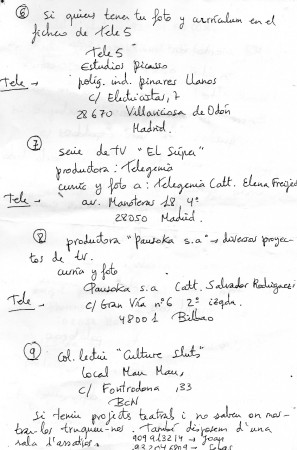 ⑥ Si quieres tener tu foto y currículum en el
fichero de Tele 5
Tele 5
Estudios Picasso
Tele → políg. ind. pinares llanos
c/ Electricistas, 7
28670 Villaviciosa de Odón
Madrid.
⑦ serie de TV "El Súper"
productora: Telegenia
curric y foto a: Telegenia Catt. Elena Freijed
Tele → av. Manoteras 18, 4º
28050 Madrid.
⑧ productora "Pausoka s.a" → diversos proyec-
tos de tv.
curric y foto
Pausoka s.a Catt. Salvador Rodriguez
Tele → c/ Gran Vía nº 6 2º izqda.
48001 Bilbao
⑨ Col. lectiu "Culture Sluts"
local Mau Mau,
c/ Fontrodona, 33
BCN
Si teniu projects teatral i no sabeu on mos-
trar-los truqueu-nos. També disposem d'una
sala d'assaigs. 909913214 → Joan